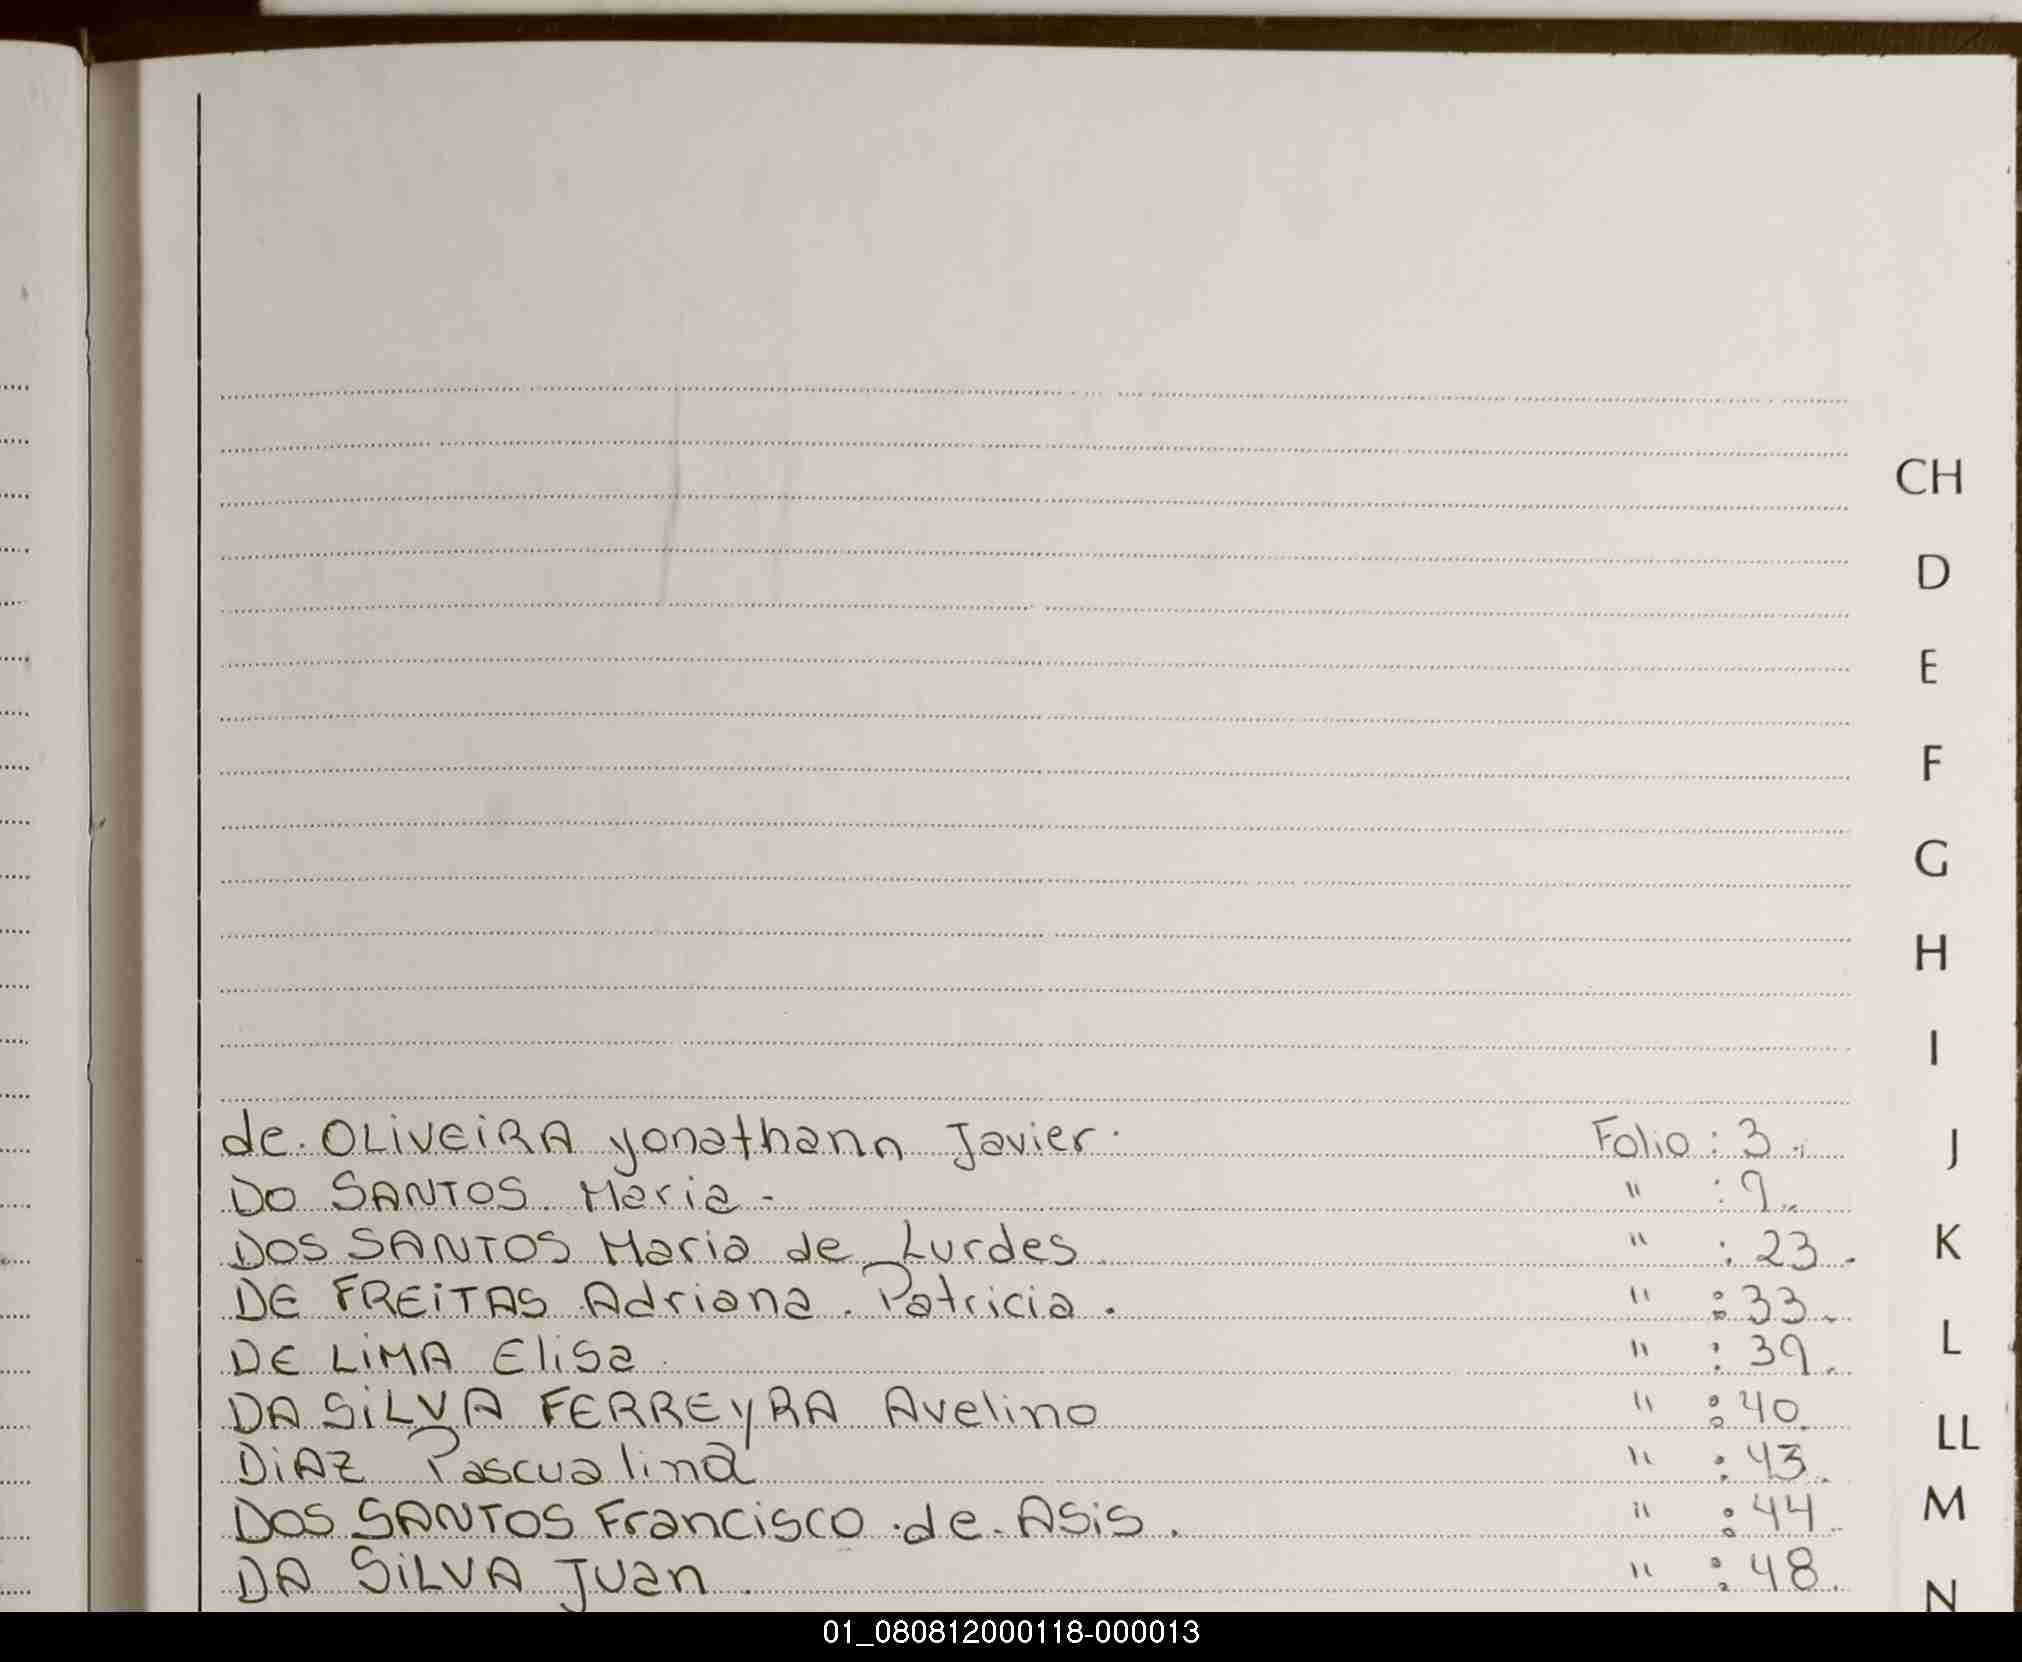 CH
D
E
F
G
H
I
de OLIVEIRA yonathann Javier. Folio: 3.
J
DO SANTOS Maria - " : 9.
DOS SANTOS Maria de Lurdes " : 23.
K
DE FREITAS Adriana Patricia. " : 33.
DE LIMA Elisa " : 39.
L
DA SILVA FERREYRA Avelino " : 40.
LL
DIAZ Pascualina " : 43.
DOS SANTOS Francisco de Asis. " : 44.
M
DA SILVA Juan. " : 48.
N
01_080812000118-000013